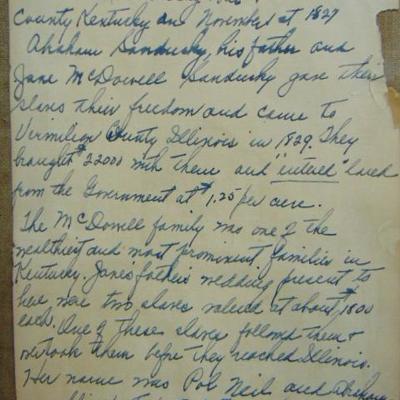 County Kentucky on November at 1827
Abraham Sandusky, his father and
Jane McDowell Sandusky gave their
slaves their freedom and came to
Vermilion County Illinois in 1829. They
brought $22000 with them and "entered" land
from the Government at $1.25 per acre.
The McDowell family was one of the
wealthiest and most prominent families in
Kentucky. Janes fathers wedding present to
her were two slaves valued at about $1800
each. One of these slaves followed them &
overtook them before they reached Illinois.
Her name was Neil and Abraham